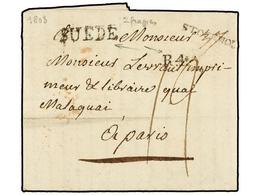 1808 2 frappes
SUEDE Monsieur
STOCKHOL
Monsieur Levrault impri-
R.4.
meur & libraire quai
Malaquai
à paris